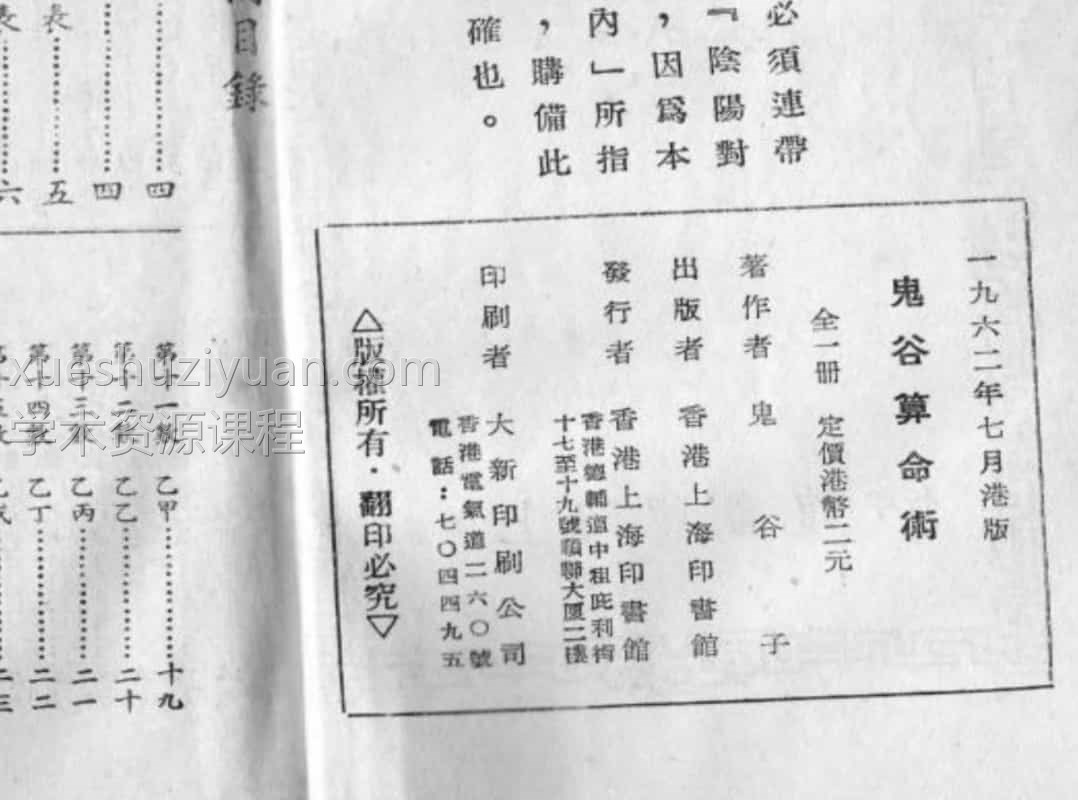 必須連帶
『陰陽對
，因爲本
內」所指
，購備此
確也。
一九六二年七月港版
鬼谷算命術
全一册 定價港幣二元
著作者 鬼谷子
出版者 香港上海印書館
發行者 香港上海印書館
香港德輔道中租庇利街
十七至十九號順聯大厦二樓
印刷者 大新印刷公司
香港電氣道二六〇號
電話：七〇四四九五
△版權所有·翻印必究▽
目錄
四
四
表 五
表 六
第十一數 乙甲 十九
第十二數 乙乙 二十
第十三數 乙丙 二一
第十四數 乙丁 二二
乙戊 二三
xueshuziyuan.com
学术资源课程